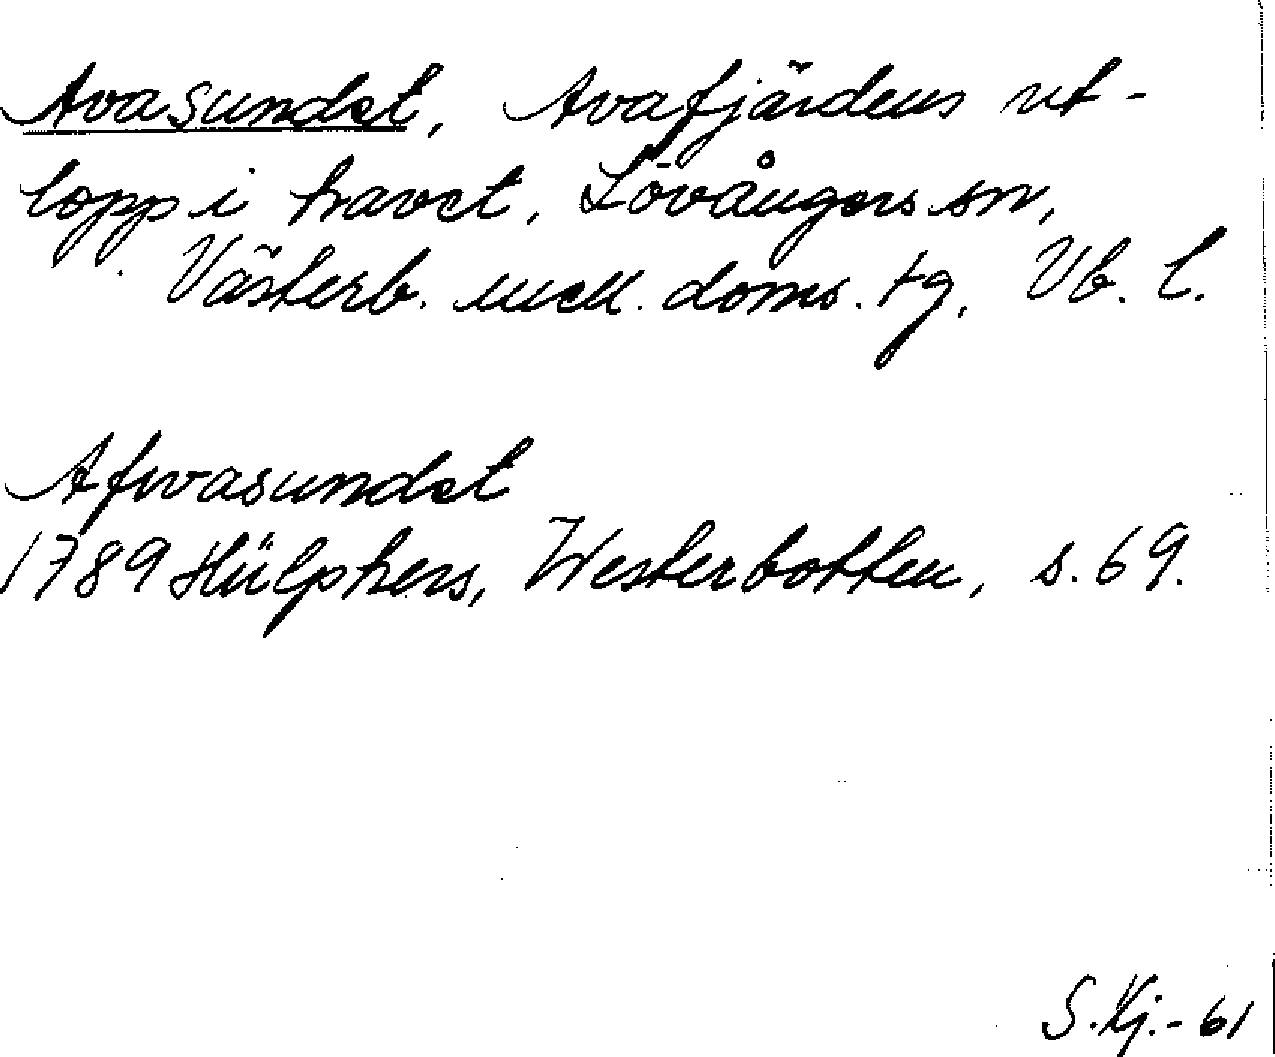 Avasundet, Avafjärdens ut-
lopp i havet, Lövångers sn,
Västerb. mell. doms. tg, Vb. l.
Afwasundet
1789 Hülphers, Westerbotten, s. 69.
S. Kj. - 61